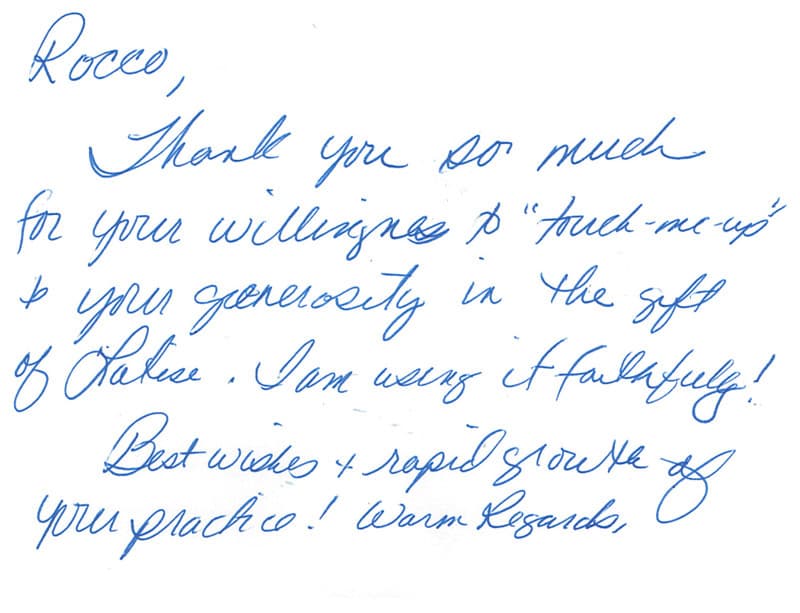 Rocco,
Thank you so much
for your willingness to "touch-me-up"
& your generosity in the gift
of Latisse. I am using it faithfully!
Best wishes + rapid growth of
your practice! Warm Regards,